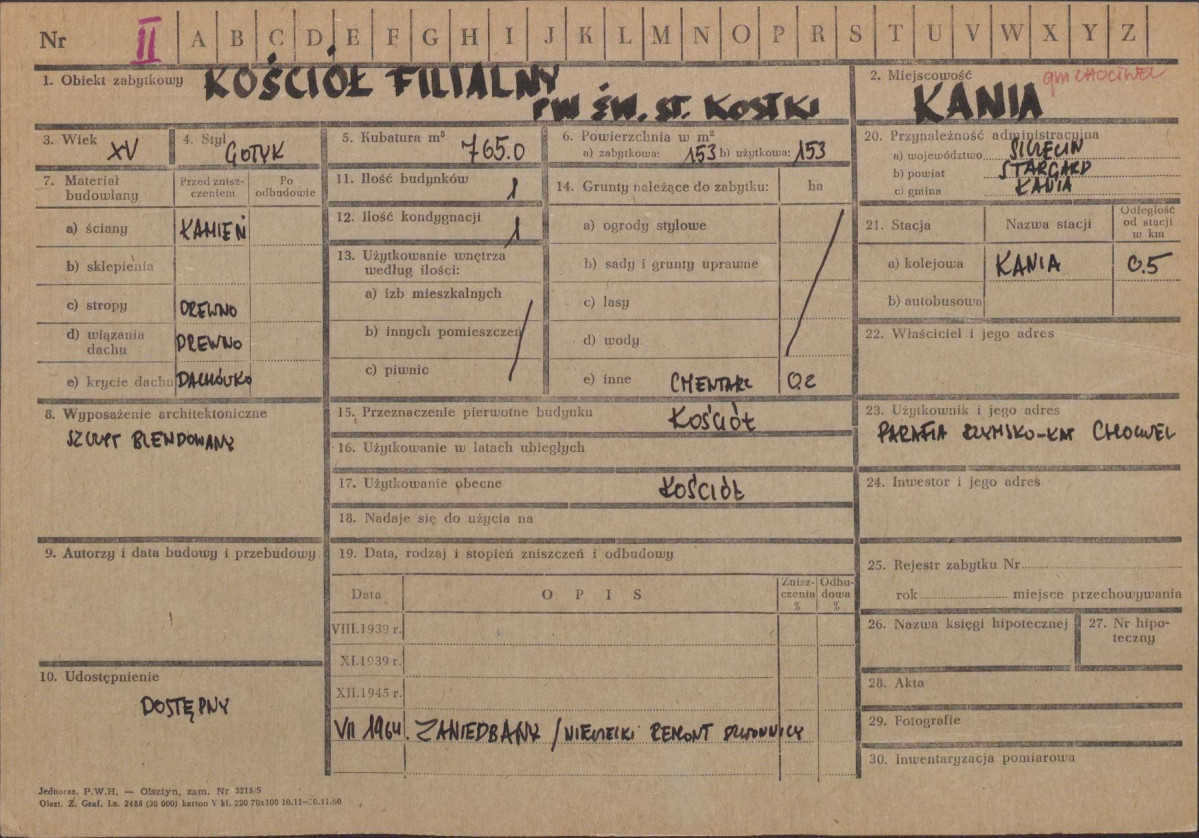 Nr II A B C D E F G H I J K L M N O P R S T U V W X Y Z
1. Obiekt zabytkowy KOŚCIÓŁ FILIALNY
PW ŚW. ST. KOSTKI
2. Miejscowość gm CHOCIWEL
KANIA
3. Wiek XV
4. Styl GOTYK
5. Kubatura m³ 765.0
6. Powierzchnia w m²
a) zabytkowa: 153 b) użytkowa: 153
7. Materiał budowlany
Przed zniszczeniem
Po odbudowie
a) ściany KAMIEŃ
b) sklepienia
c) stropy DREWNO
d) wiązania dachu DREWNO
e) krycie dachu DACHÓWKO
8. Wyposażenie architektoniczne
SZCZYT BLENDOWANY
9. Autorzy i data budowy i przebudowy
10. Udostępnienie
DOSTĘPNY
11. Ilość budynków 1
12. Ilość kondygnacji 1
13. Użytkowanie wnętrza
według ilości:
a) izb mieszkalnych
b) innych pomieszczeń
c) piwnic
14. Grunty należące do zabytku: ha
a) ogrody stylowe
b) sady i grunty uprawne
c) lasy
d) wody
e) inne CMENTARZ 0.2
15. Przeznaczenie pierwotne budynku KOŚCIÓŁ
16. Użytkowanie w latach ubiegłych
17. Użytkowanie obecne KOŚCIÓŁ
18. Nadaje się do użycia na
19. Data, rodzaj i stopień zniszczeń i odbudowy
Data
O P I S
Zniszczenia %
Odbudowa %
VIII.1939 r.
XI.1939 r.
XII.1945 r.
VII 1964. ZANIEDBANY /NIEWIELKI REMONT DZWONNICY
20. Przynależność administracyjna
a) województwo SZCZECIN
b) powiat STARGARD
c) gmina KANIA
21. Stacja
Nazwa stacji
Odległość od stacji w km
a) kolejowa KANIA 0.5
b) autobusowa
22. Właściciel i jego adres
23. Użytkownik i jego adres
PARAFIA RZYMSKO-KAT CHOCIWEL
24. Inwestor i jego adres
25. Rejestr zabytku Nr
rok miejsce przechowywania
26. Nazwa księgi hipotecznej
27. Nr hipoteczny
28. Akta
29. Fotografie
30. Inwentaryzacja pomiarowa
Jednoraz. P.W.H. — Olsztyn, zam. Nr 3215/S
Olszt. Z. Graf. Lz. 2485 (30 000) karton V kl. 220 70x100 10.11—30.11.60